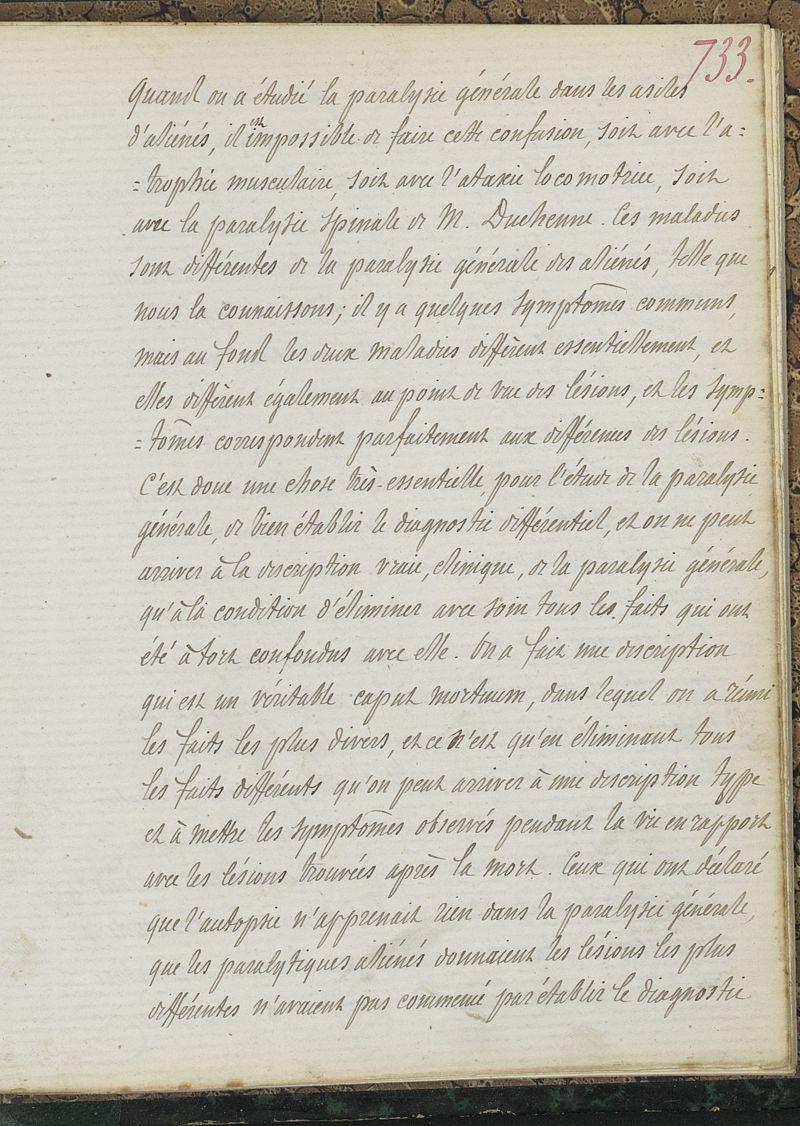 733.
Quand on a étudié la paralysie générale dans les asiles
d'aliénés, il est impossible de faire cette confusion, soit avec l'a=
=trophie musculaire, soit avec l'ataxie locomotrice, soit
avec la paralysie spinale de M. Duchenne. Ces maladies
sont différentes de la paralysie générale des aliénés, telle que
nous la connaissons; il y a quelques symptômes communs,
mais au fond les deux maladies diffèrent essentiellement, et
elles diffèrent également au point de vue des lésions, et les symp=
=tômes correspondent parfaitement aux différences des lésions.
C'est donc une chose très-essentielle, pour l'étude de la paralysie
générale, de bien établir le diagnostic différentiel, et on ne peut
arriver à la description vraie, clinique, de la paralysie générale,
qu'à la condition d'éliminer avec soin tous les faits qui ont
été à tort confondus avec elle. On a fait une description
qui est un véritable caput mortuum, dans lequel on a réuni
les faits les plus divers, et ce n'est qu'en éliminant tous
les faits différents qu'on peut arriver à une description type
et à mettre les symptômes observés pendant la vie en rapport
avec les lésions trouvées après la mort. Ceux qui ont déclaré
que l'autopsie n'apprenait rien dans la paralysie générale,
que les paralytiques aliénés donnaient les lésions les plus
différentes n'avaient pas commencé par établir le diagnostic